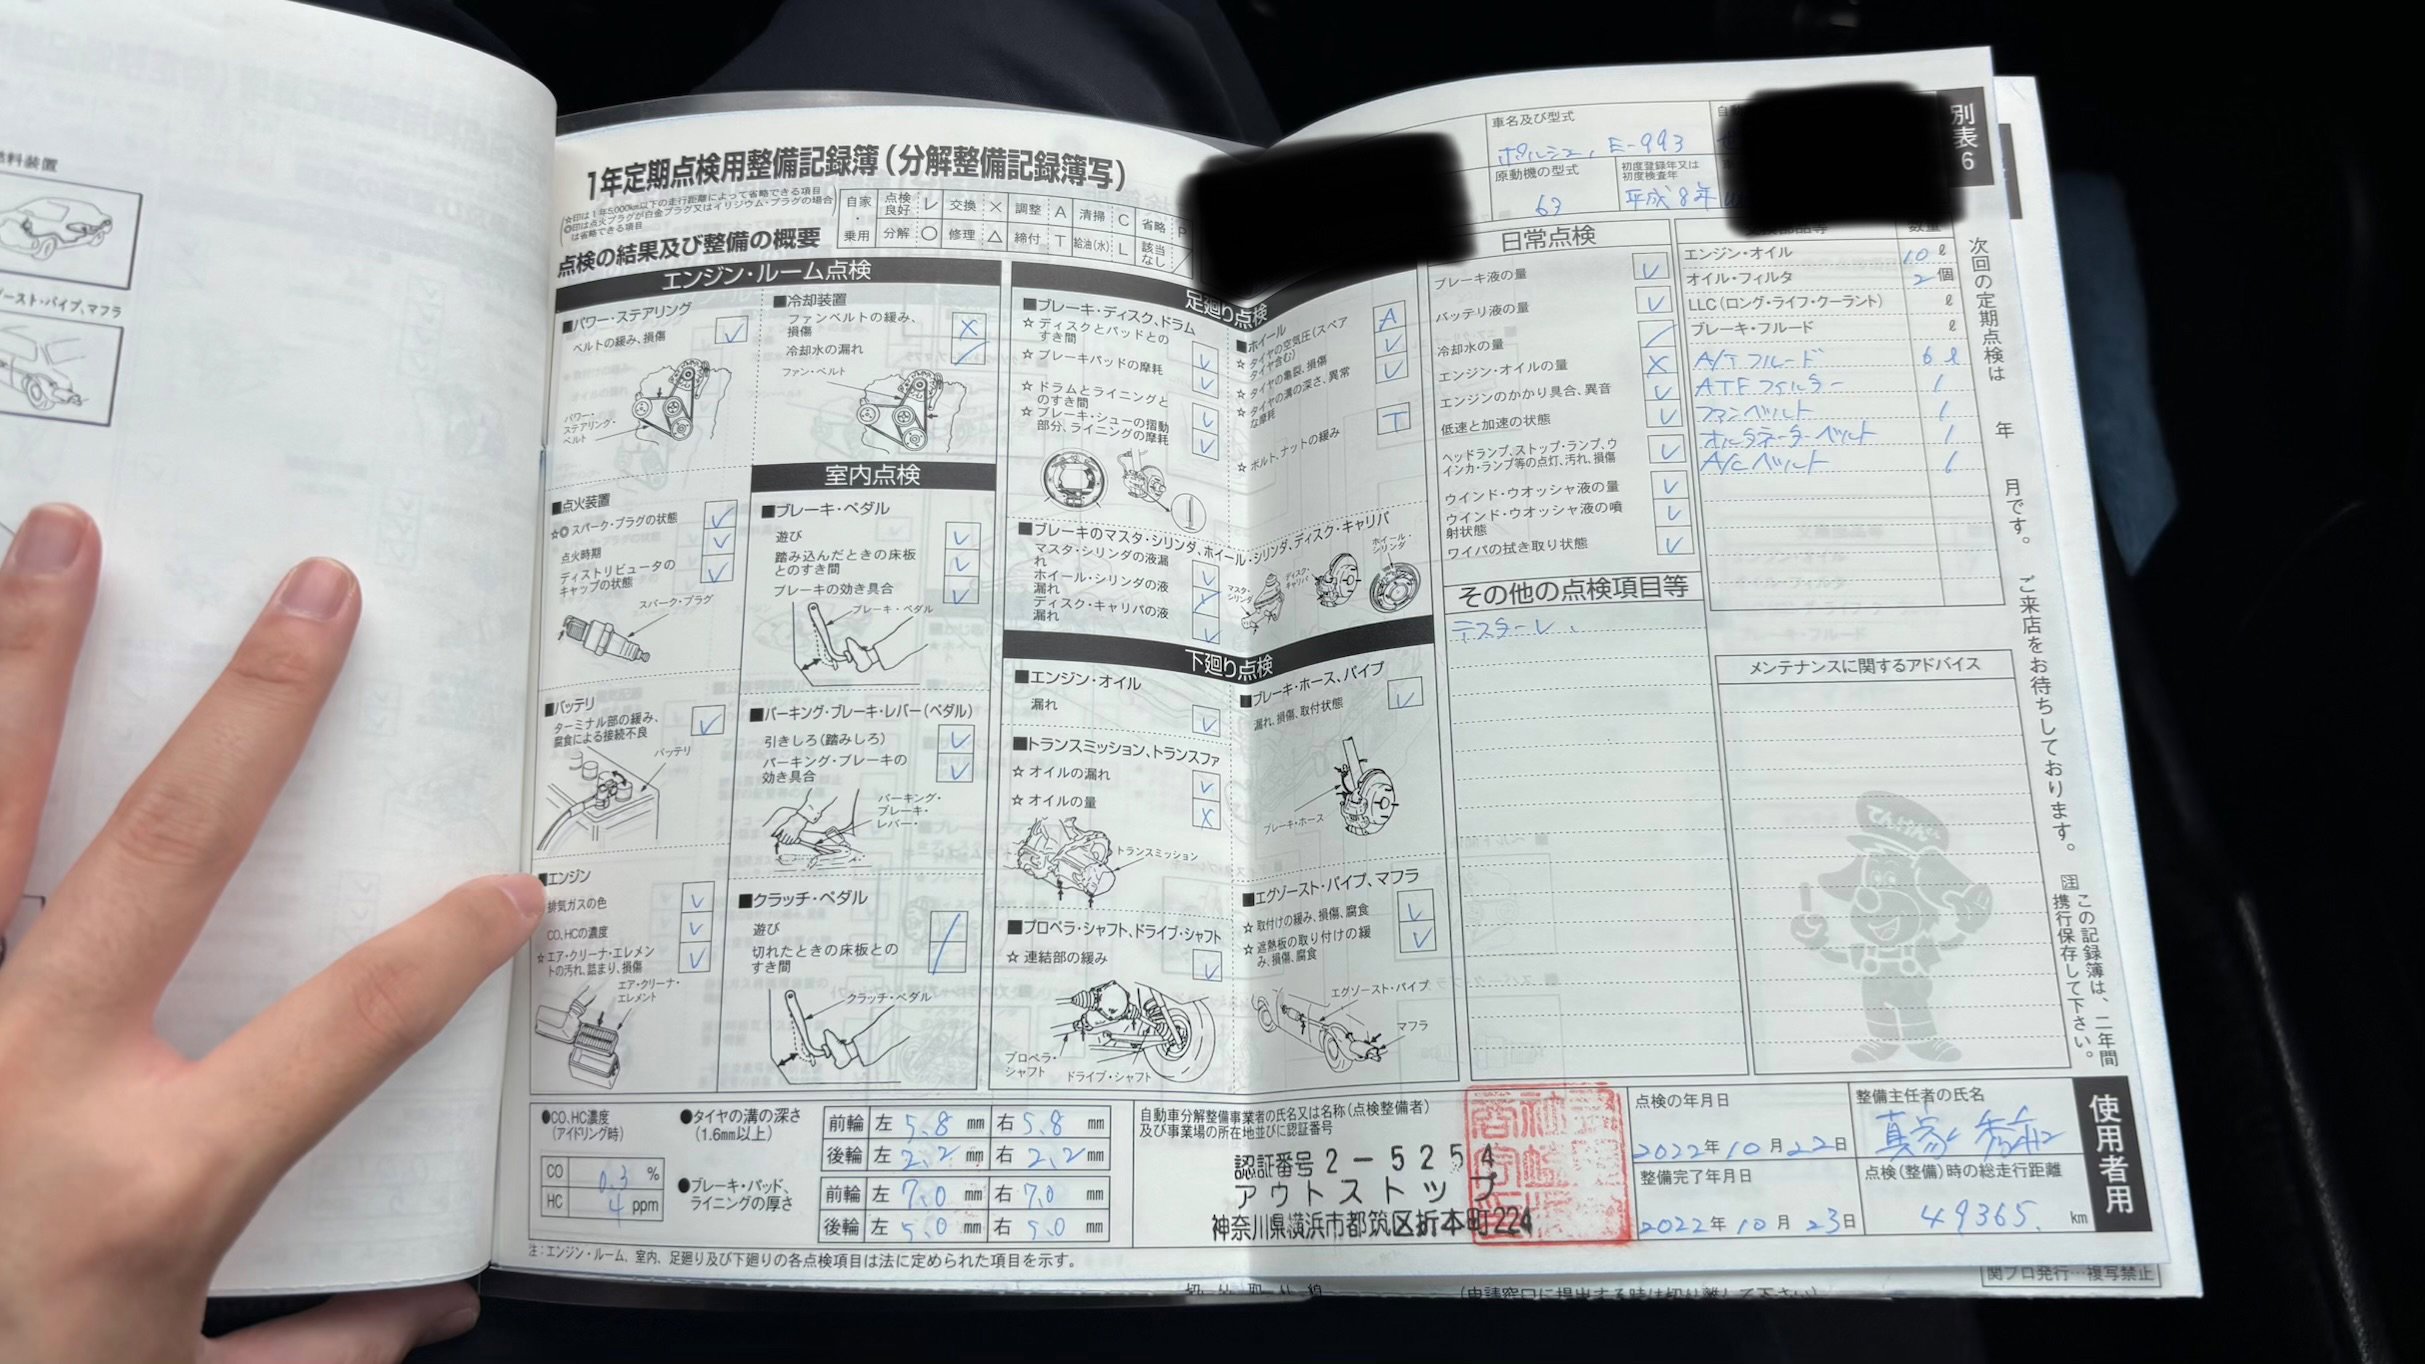 燃料装置
ースト・パイプ、マフラ
1年定期点検用整備記録簿(分解整備記録簿写)
☆印は1年5,000km以下の走行距離によって省略できる項目
◎印は点火プラグが白金プラグ又はイリジウム・プラグの場合
は省略できる項目
点検の結果及び整備の概要
自家・乗用
点検良好 レ 交換 × 調整 A 清掃 C 省略 P
分解 ○ 修理 △ 締付 T 給油(水) L 該当なし /
エンジン・ルーム点検
■パワー・ステアリング
ベルトの緩み、損傷 レ
パワー・
ステアリング・
ベルト
■点火装置
☆◎スパーク・プラグの状態 レ
点火時期 レ
ディストリビュータの
キャップの状態 レ
スパーク・プラグ
■バッテリ
ターミナル部の緩み、
腐食による接続不良 レ
バッテリ
■エンジン
排気ガスの色 レ
CO、HCの濃度 レ
☆エア・クリーナ・エレメン
トの汚れ、詰まり、損傷 レ
エア・クリーナ・
エレメント
■冷却装置
ファンベルトの緩み、
損傷 ×
冷却水の漏れ /
ファン・ベルト
室内点検
■ブレーキ・ペダル
遊び レ
踏み込んだときの床板
とのすき間 レ
ブレーキの効き具合 レ
ブレーキ・ペダル
■パーキング・ブレーキ・レバー(ペダル)
引きしろ(踏みしろ) レ
パーキング・ブレーキの
効き具合 レ
パーキング・
ブレーキ・
レバー・
■クラッチ・ペダル
遊び /
切れたときの床板との
すき間
クラッチ・ペダル
足廻り点検
■ブレーキ・ディスク、ドラム
☆ディスクとパッドとの
すき間 レ
☆ブレーキパッドの摩耗 レ
☆ドラムとライニングと
のすき間 レ
☆ブレーキ・シューの摺動
部分、ライニングの摩耗 レ
■ホイール
☆タイヤの空気圧(スペア
タイヤ含む) A
☆タイヤの亀裂、損傷 レ
☆タイヤの溝の深さ、異常
な摩耗 レ
☆ボルト、ナットの緩み T
■ブレーキのマスタ・シリンダ、ホイール・シリンダ、ディスク・キャリパ
マスタ・シリンダの液漏
れ レ
ホイール・シリンダの液
漏れ
ディスク・キャリパの液
漏れ レ
マスタ・
シリンダ
ディスク・
キャリパ
ホイール・
シリンダ
下廻り点検
■エンジン・オイル
漏れ レ
■トランスミッション、トランスファ
☆オイルの漏れ レ
☆オイルの量 ×
トランスミッション
■プロペラ・シャフト、ドライブ・シャフト
☆連結部の緩み レ
プロペラ・
シャフト
ドライブ・シャフト
■ブレーキ・ホース、パイプ
漏れ、損傷、取付状態 レ
ブレーキ・ホース
■エグゾースト・パイプ、マフラ
☆取付けの緩み、損傷、腐食 レ
☆遮熱板の取り付けの緩
み、損傷、腐食 レ
エグゾースト・パイプ
マフラ
車名及び型式
ポルシェ、E-993
原動機の型式
初度登録年又は
初度検査年
平成8年
別表6
日常点検
ブレーキ液の量 レ
バッテリ液の量 レ
冷却水の量 /
エンジン・オイルの量 ×
エンジンのかかり具合、異音 レ
低速と加速の状態 レ
ヘッドランプ、ストップ・ランプ、ウ
インカ・ランプ等の点灯、汚れ、損傷 レ
ウインド・ウオッシャ液の量 レ
ウインド・ウオッシャ液の噴
射状態 レ
ワイパの拭き取り状態 レ
その他の点検項目等
テスターレ、
数量
エンジン・オイル 10 ℓ
オイル・フィルタ 2 個
LLC(ロング・ライフ・クーラント) ℓ
ブレーキ・フルード ℓ
A/Tフルード 6ℓ
ATFフィルター 1
ファンベルト 1
オルタネーターベルト 1
A/Cベルト 1
メンテナンスに関するアドバイス
てんけんくん
次回の定期点検は 年 月です。ご来店をお待ちしております。
注 この記録簿は、二年間
携行保存して下さい。
●CO、HC濃度
(アイドリング時)
CO 0.3 %
HC 4 ppm
●タイヤの溝の深さ
(1.6mm以上)
前輪 左 5.8 mm 右 5.8 mm
後輪 左 2.2 mm 右 2.2 mm
●ブレーキ・パッド、
ライニングの厚さ
前輪 左 7.0 mm 右 7.0 mm
後輪 左 5.0 mm 右 5.0 mm
注:エンジン・ルーム、室内、足廻り及び下廻りの各点検項目は法に定められた項目を示す。
自動車分解整備事業者の氏名又は名称(点検整備者)
及び事業場の所在地並びに認証番号
認証番号2-5254
アウトストップ
神奈川県横浜市都筑区折本町224
点検の年月日
2022年10月22日
整備完了年月日
2022年10月23日
整備主任者の氏名
点検(整備)時の総走行距離
49365. km
使用者用
関プロ発行…複写禁止
切り取り線
(申請窓口に提出する時は切り離して下さい)